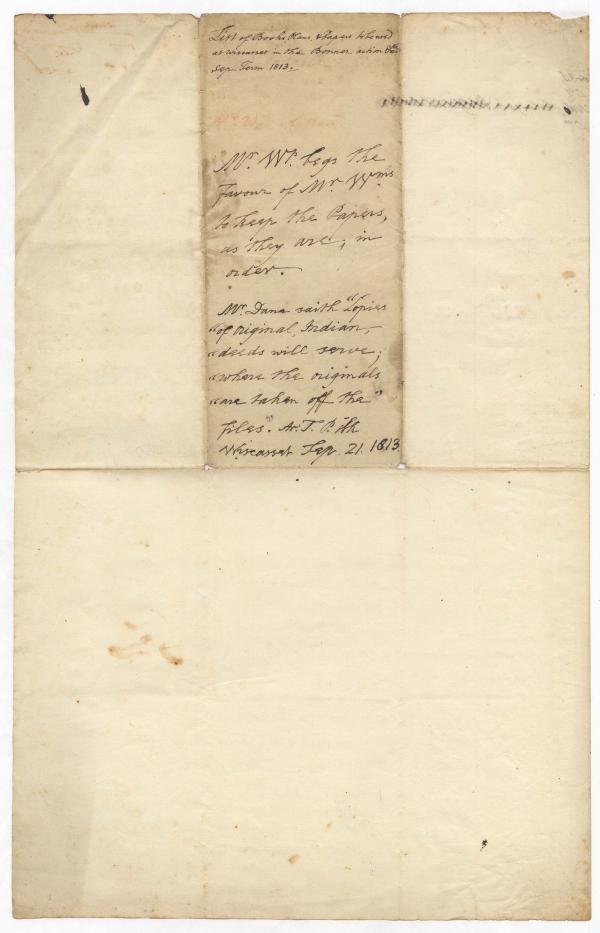 List of Books Plans & Papers to be used
at Wiscasset in the Bonner action
Sep. Term 1813.
Mr. Wr. begs the
favour of Mr. Wms
to keep the Papers,
as they are, in
order.
Mr. Dana saith "Copies
"of original, Indian,
"deeds will serve;
"where the originals
"are taken off the"
files".
Wiscasset Sep. 21. 1813